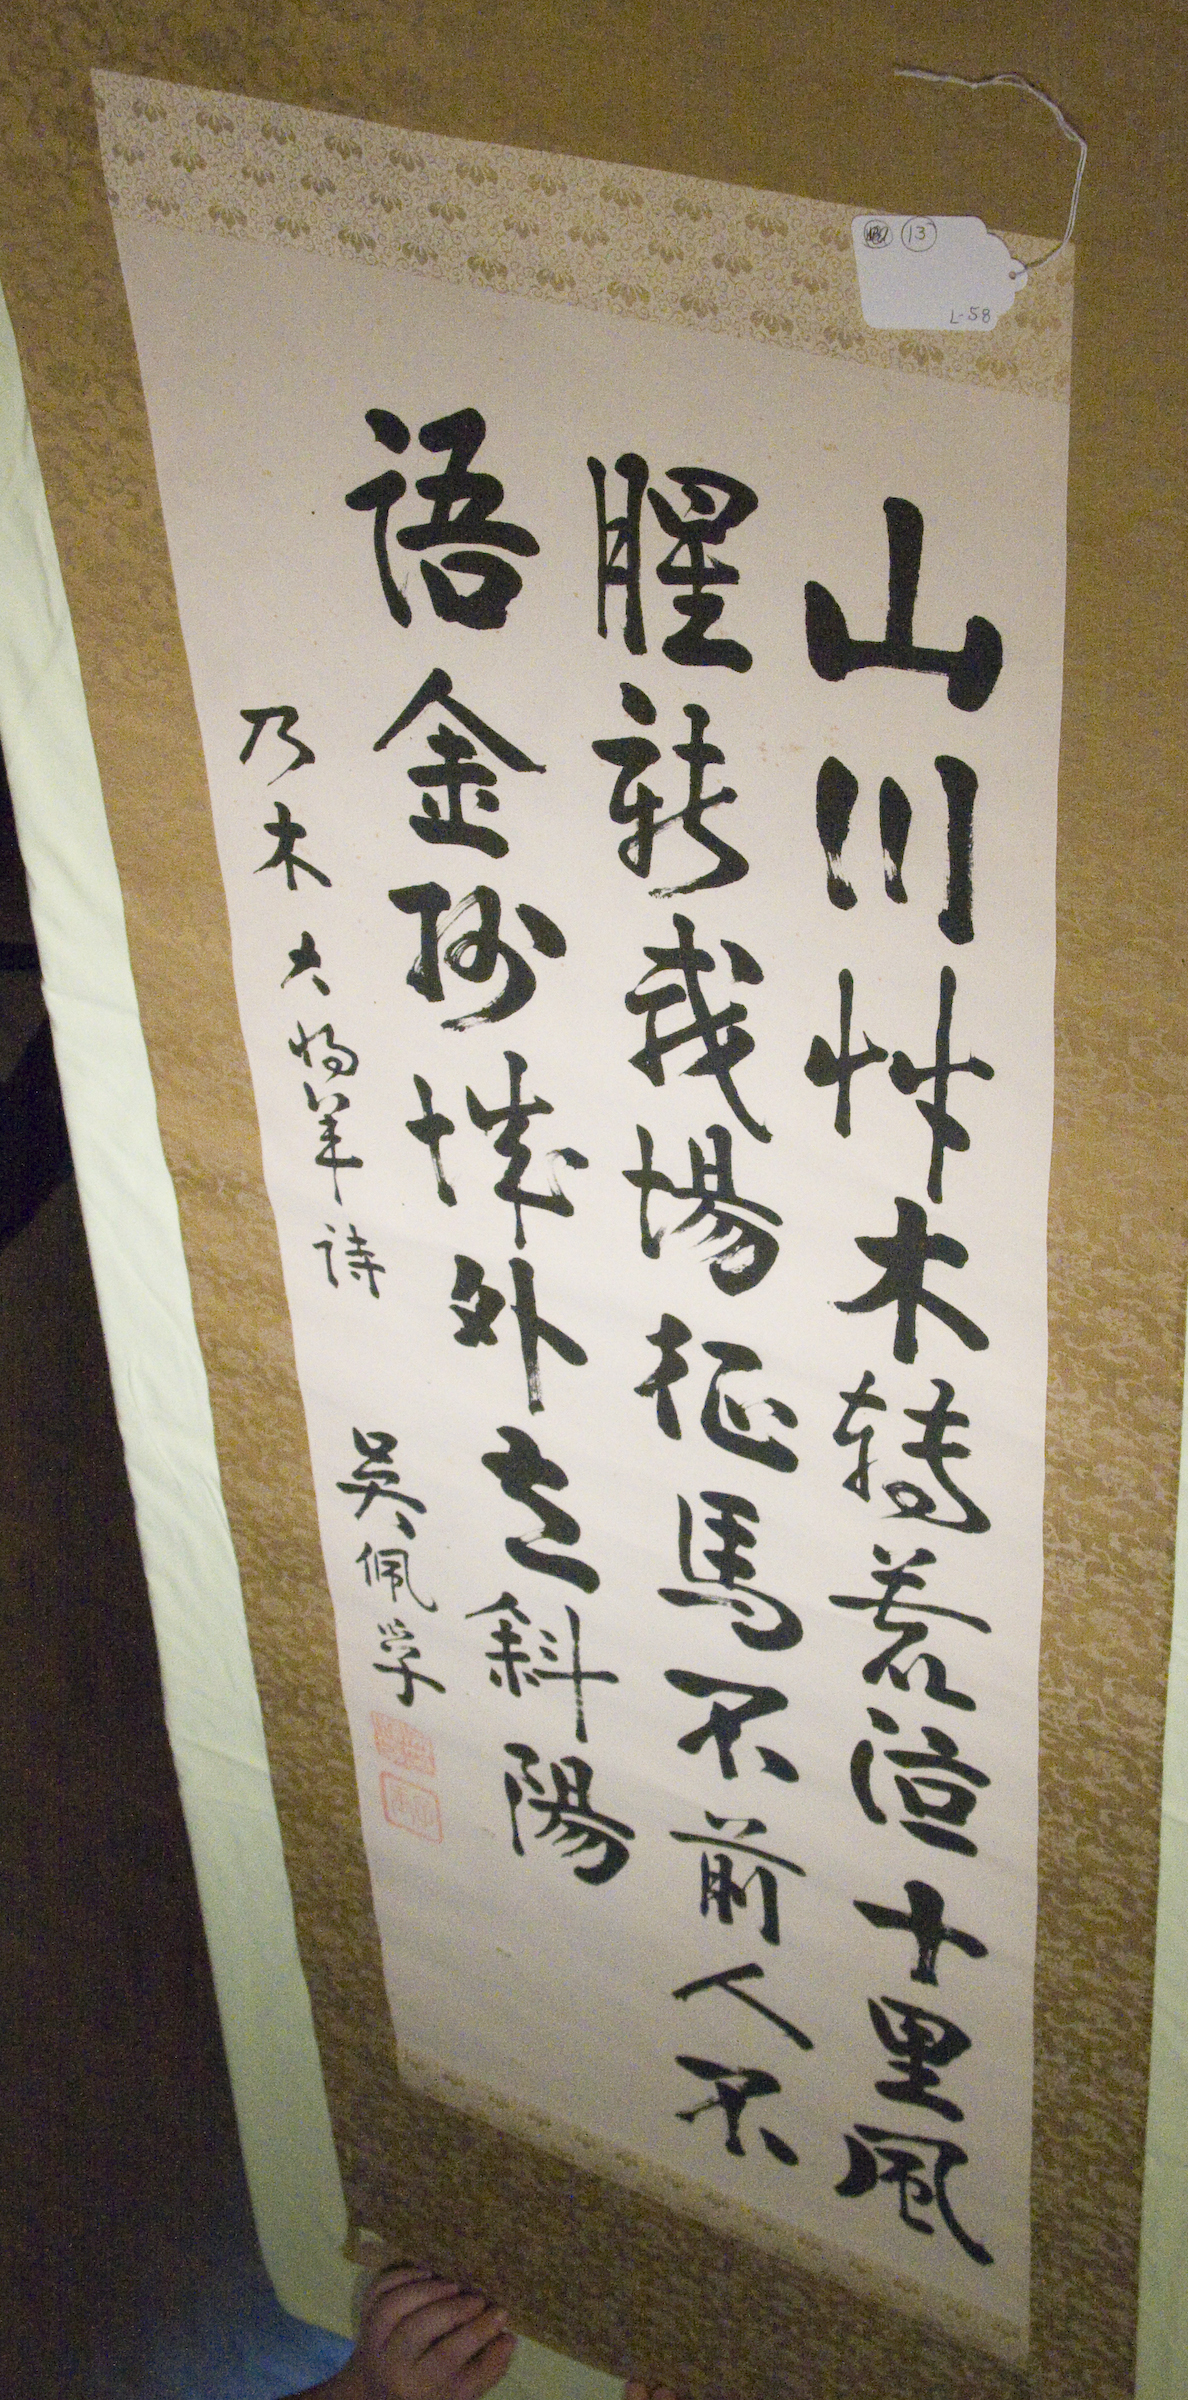 13
L-58
山川艸木轉蒼涼十里風
腥新戰場征馬不前人不
語金州城外立斜陽
乃木大将軍詩 吳佩孚